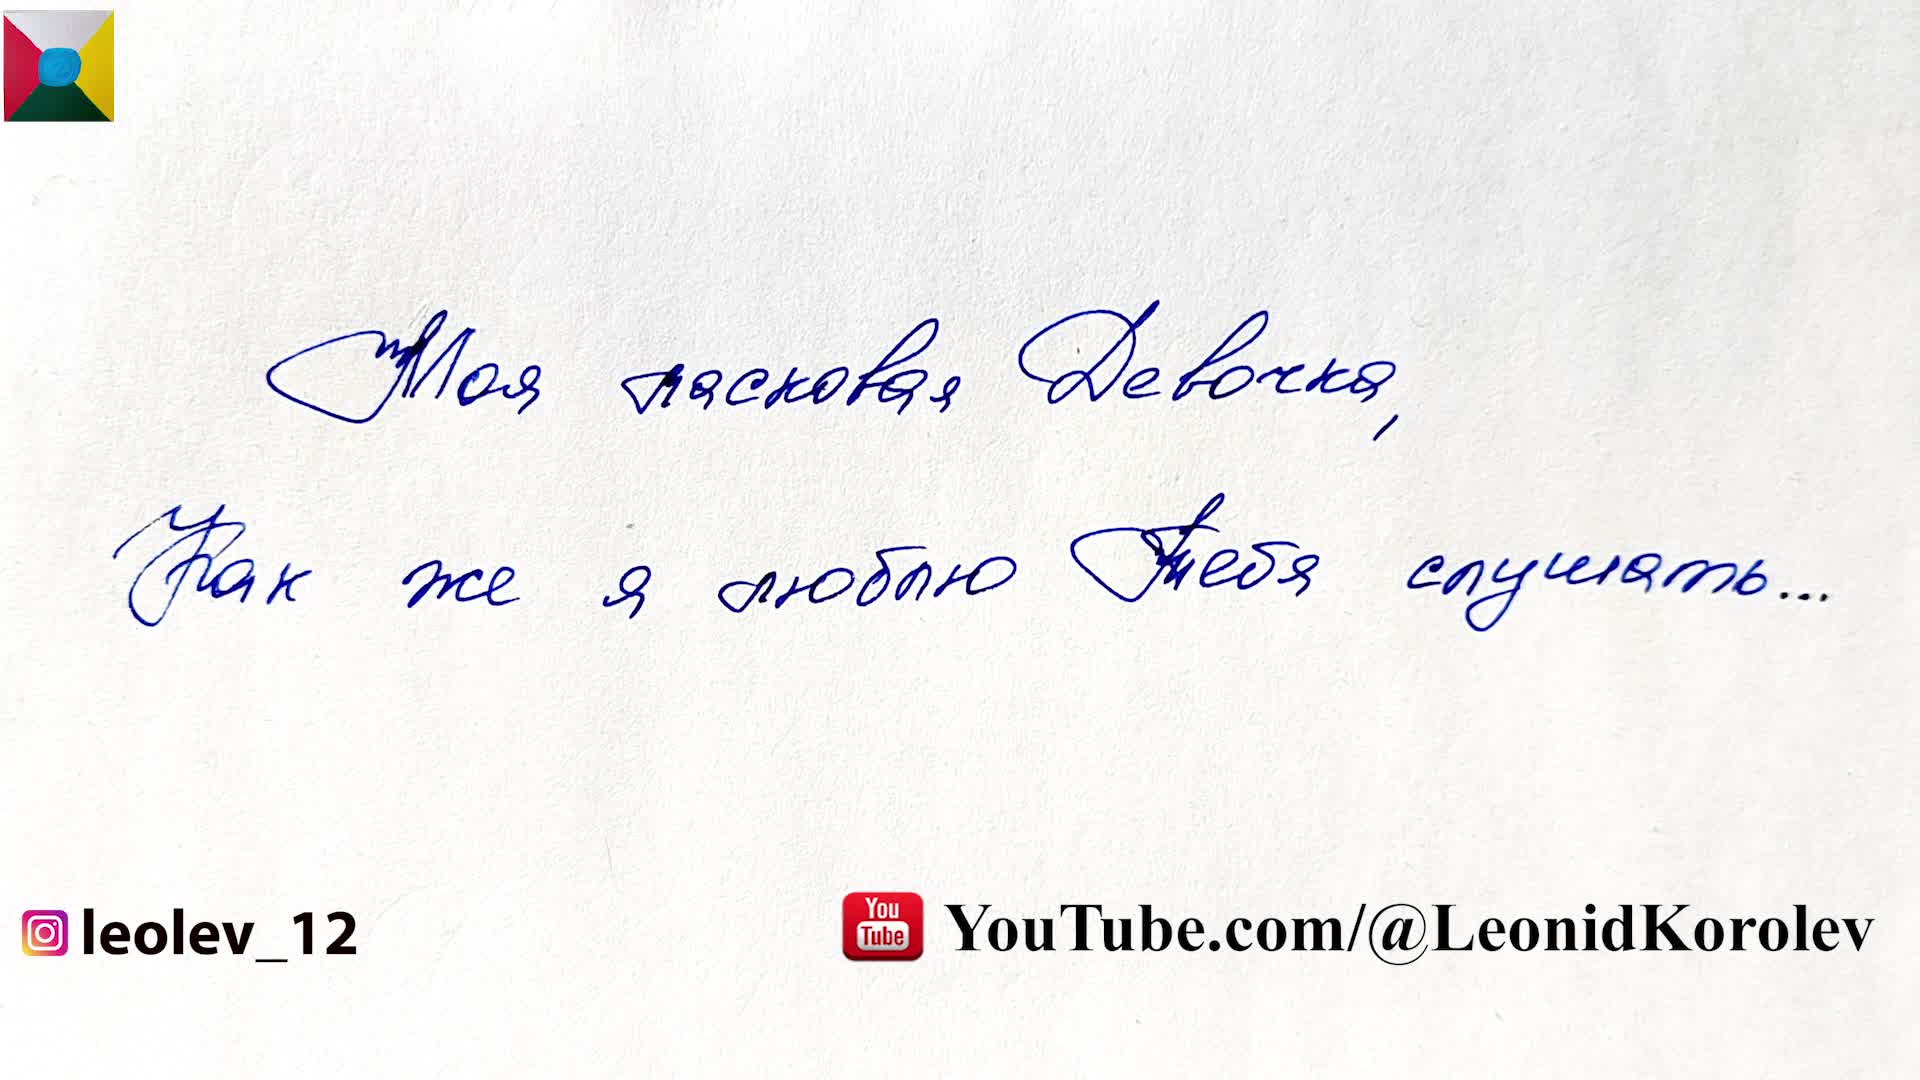 Моя ласковая Девочка,
Как же я люблю Тебя слушать...
leolev_12
You Tube YouTube.com/@LeonidKorolev